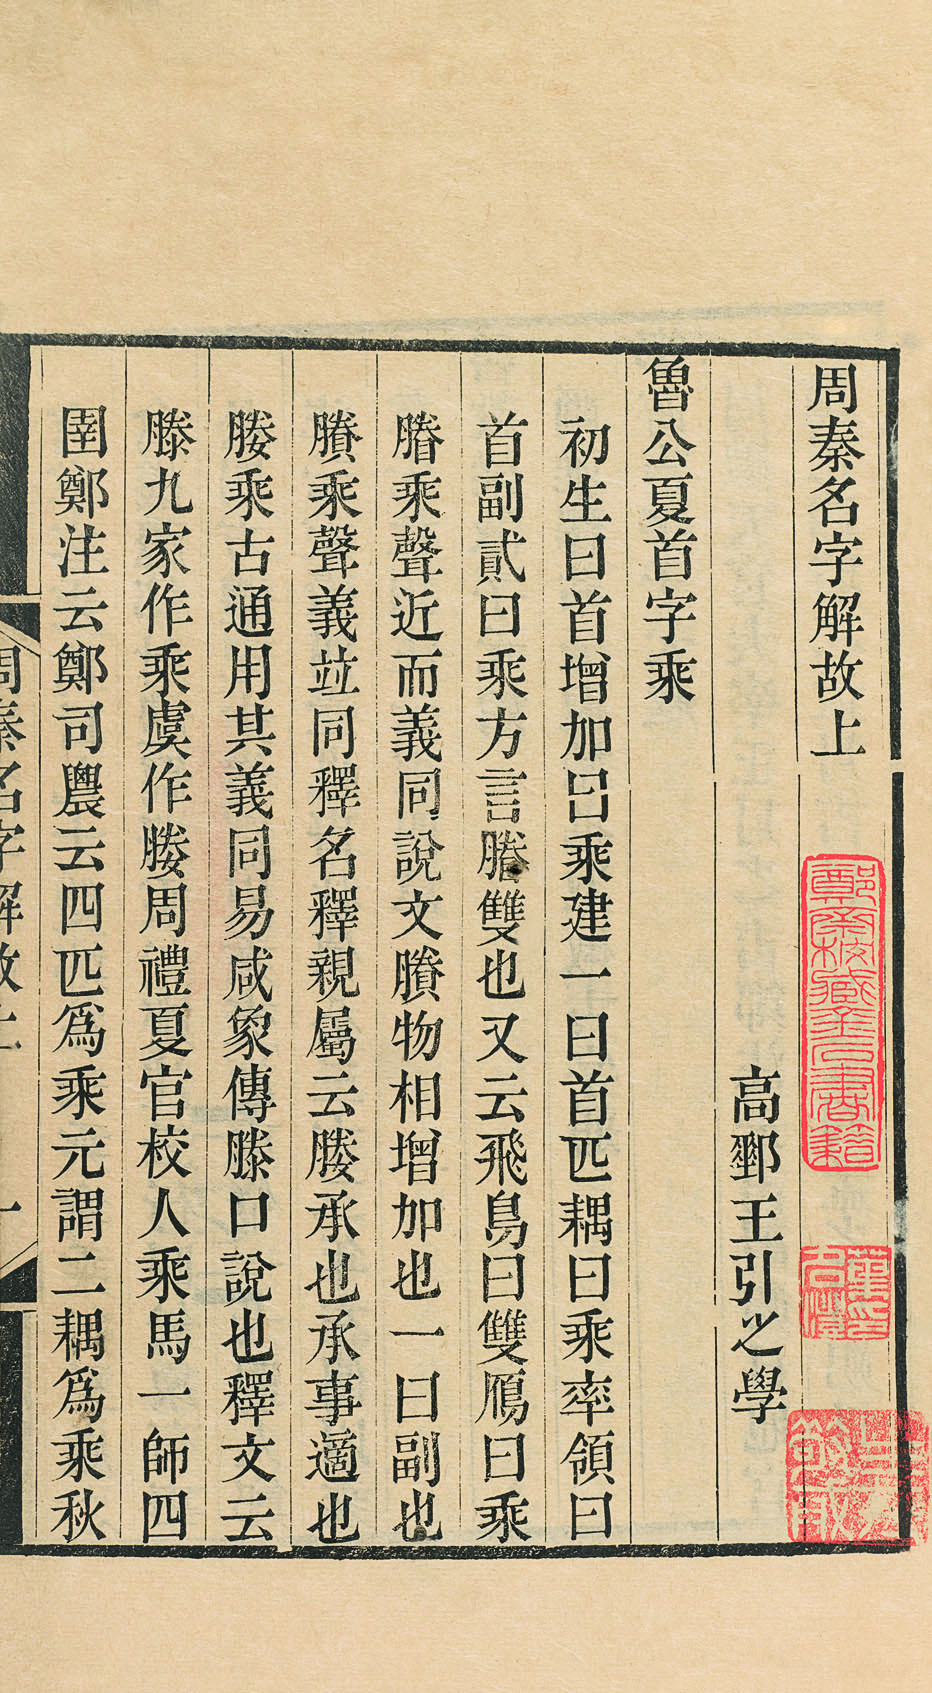 周秦名字解故上
高郵王引之學
魯公夏首字乘
初生曰首增加曰乘建一曰首匹耦曰乘率領曰
首副貳曰乘方言䑋雙也又云飛鳥曰雙鴈曰乘
䑋乘聲近而義同說文賸物相增加也一曰副也
賸乘聲義竝同釋名釋親屬云媵承也承事適也
媵乘古通用其義同易咸象傳滕口說也釋文云
滕九家作乘虞作媵周禮夏官校人乘馬一師四
圉鄭注云鄭司農云四匹爲乘元謂二耦爲乘秋
周秦名字解故上 一